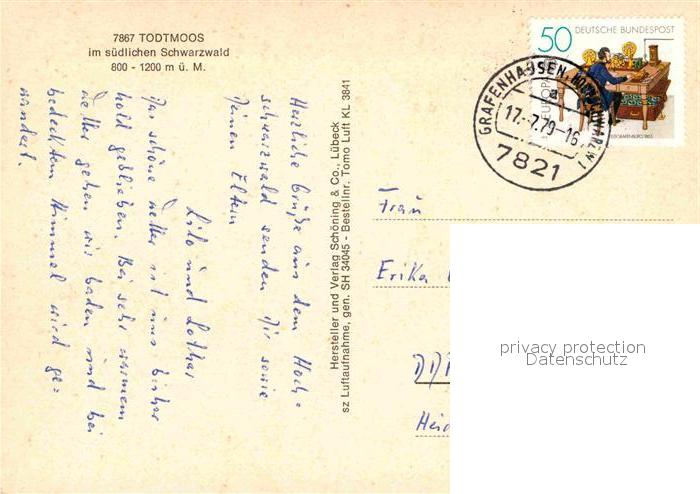 7867 TODTMOOS
im südlichen Schwarzwald
800 - 1200 m ü. M.
Herzliche Grüße aus dem Hoch=
schwarzwald senden Dir sowie
Deinen Eltern
Lilo und Lothar
Das schöne Wetter ist uns bisher
hold geblieben. Bei sehr warmem
Wetter gehen wir baden und bei
bedecktem Himmel wird ge=
wandert.
Hersteller und Verlag Schöning & Co., Lübeck
sz Luftaufnahme, gen. SH 34045 - Bestellnr. Tomo Luft KL 3841
50 DEUTSCHE BUNDESPOST
EUROPA
GRAFENHAUSEN, HOCHSCHWARZW 1
a
17.-7.79-16
7821
Frau
Erika
DDR
Heid
privacy protection
Datenschutz